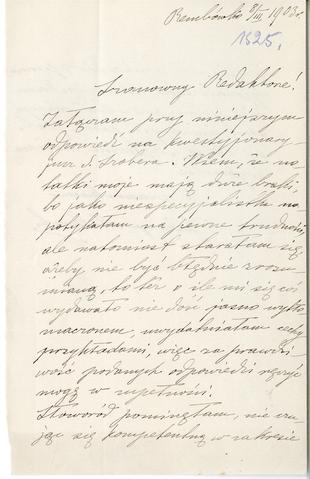 Rembówko 9/III 1903 r.
1525.
Szanowny Redaktorze!
Załączam przy niniejszym
odpowiedź na kwestyjonary-
jusz d. Szobera. Wiem, że no-
tatki moje mają duże braki,
bo jako niespecyjalistka na-
potykałam na pewne trudności,
ale natomiast starałam się
żeby nie być błędnie zrozu-
mianą, to też o ile mi się coś
wydawało nie dość jasno wytłó-
maczonem, uwydatniałam cechy
przykładami, więc za prawdzi-
wość podanych odpowiedzi ręczyć
mogę w zupełności.
Słoworód pominęłam, nie czu-
jąc się kompetentną w zakresie